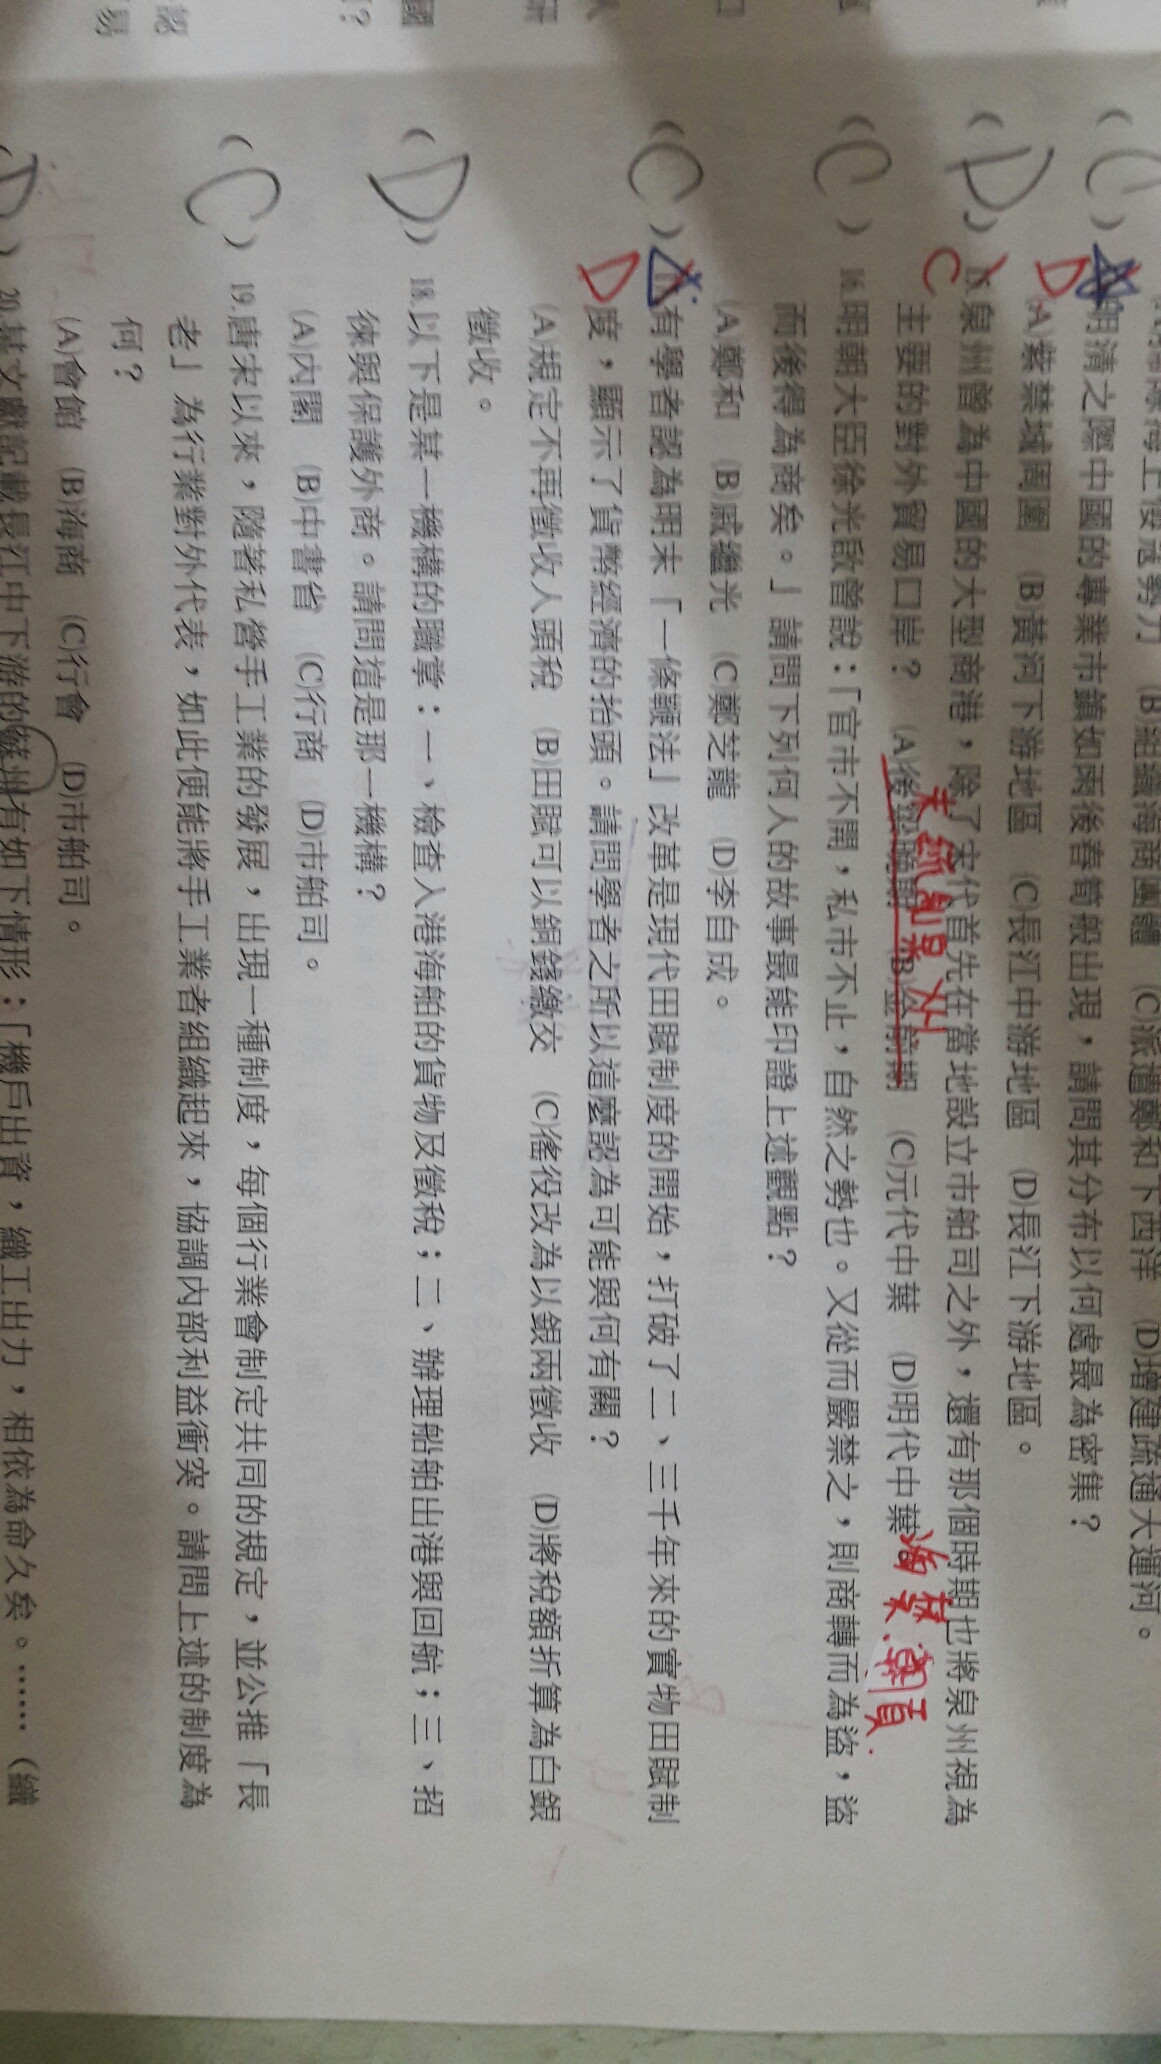 (B)組織海商團體 (C)派遣鄭和下西洋 (D)增建疏通大運河。
(C) 明清之際中國的專業市鎮如雨後春筍般出現，請問其分布以何處最為密集？
D (A)紫禁城周圍 (B)黃河下游地區 (C)長江中游地區 (D)長江下游地區。
(D) 泉州曾為中國的大型商港，除了宋代首先在當地設立市舶司之外，還有那個時期也將泉州視為
C 主要的對外貿易口岸？ (A)後 (C)元代中葉 (D)明代中葉
海禁 朝貢
(C) 16.明朝大臣徐光啟曾說：「官市不開，私市不止，自然之勢也。又從而嚴禁之，則商轉而為盜，盜
而後得為商矣。」請問下列何人的故事最能印證上述觀點？
(A)鄭和 (B)戚繼光 (C)鄭芝龍 (D)李自成。
(C) 有學者認為明末「一條鞭法」改革是現代田賦制度的開始，打破了二、三千年來的實物田賦制
D 度，顯示了貨幣經濟的抬頭。請問學者之所以這麼認為可能與何有關？
(A)規定不再徵收人頭稅 (B)田賦可以銅錢繳交 (C)徭役改為以銀兩徵收 (D)將稅額折算為白銀
徵收。
(D) 18.以下是某一機構的職掌：一、檢查入港海舶的貨物及徵稅；二、辦理船舶出港與回航；三、招
徠與保護外商。請問這是那一機構？
(A)內閣 (B)中書省 (C)行商 (D)市舶司。
(C) 19.唐宋以來，隨著私營手工業的發展，出現一種制度，每個行業會制定共同的規定，並公推「長
老」為行業對外代表，如此便能將手工業者組織起來，協調內部利益衝突。請問上述的制度為
何？
(A)會館 (B)海商 (C)行會 (D)市舶司。
(D) 20.某文獻記載長江中下游的蘇州有如下情形：「機戶出資，織工出力，相依為命久矣。……（織